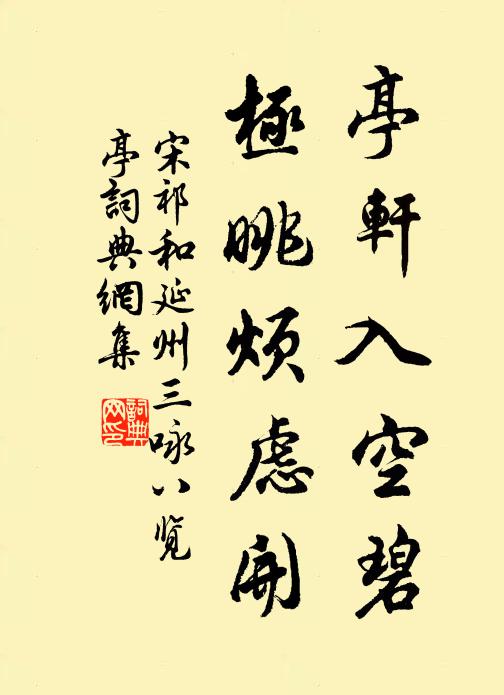 亭軒入空碧
極眺煩慮開
宋祁和延州三咏八覽
亭詞典網集
詞典
网印